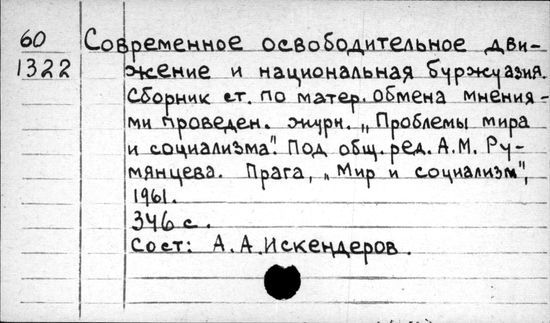 60 Современное освободительное дви-
1322 жение и национальная буржуазия.
Сборник ст. по матер. обмена мнения-
ми проведен. журн. „Проблемы мира
и социализма". Под общ. ред. А.М. Ру-
мянцева. Прага, „Мир и социализм",
1961.
346 с.
Сост: А. А. Искендеров.